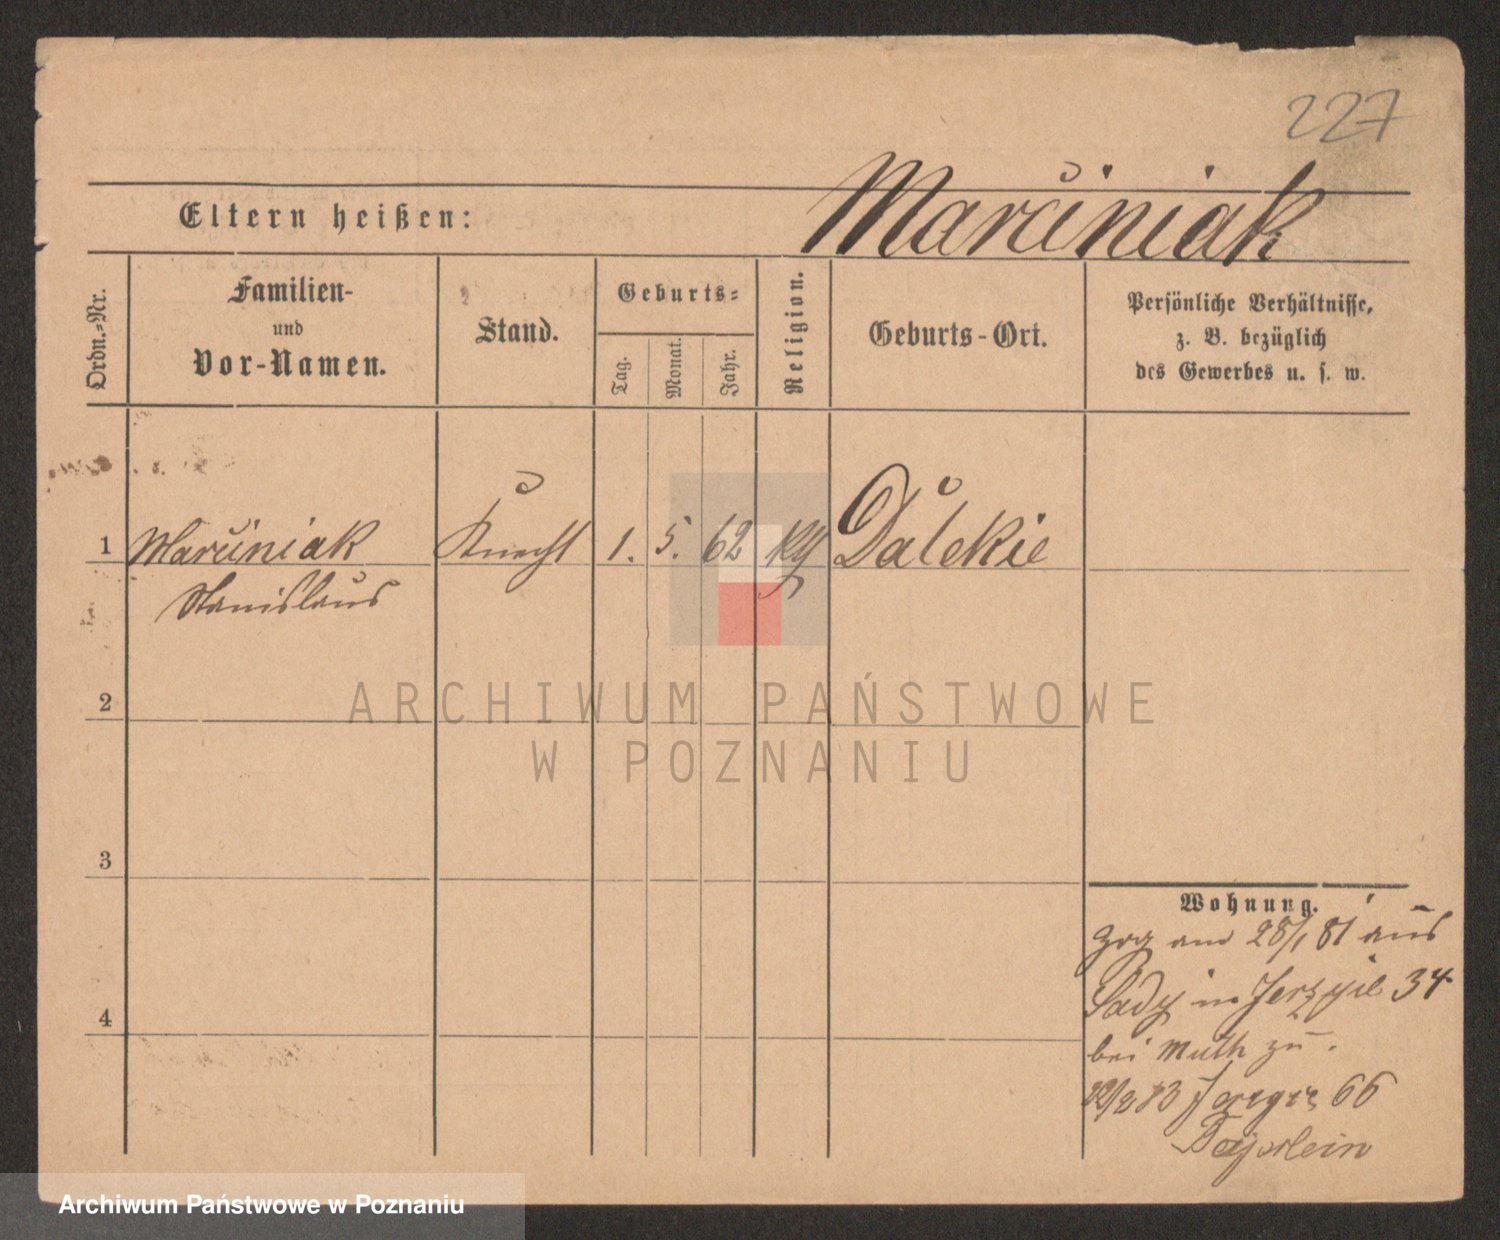 227
Eltern heißen:
Marciniak
Ordn.=Nr.
Familien-
und
Vor-Namen.
Stand.
Geburts=
Tag.
Monat.
Jahr.
Religion.
Geburts-Ort.
Persönliche Verhältnisse,
z. B. bezüglich
des Gewerbes u. s. w.
1 Marciniak Knecht 1. 5. 62 kth Dalekie
Stanislaus
2
3
4
Wohnung.
zog am 28/1 81 aus
Sady in Jerzyce 34
bei Muth zu.
83 66
ARCHIWUM PAŃSTWOWE
W POZNANIU
Archiwum Państwowe w Poznaniu